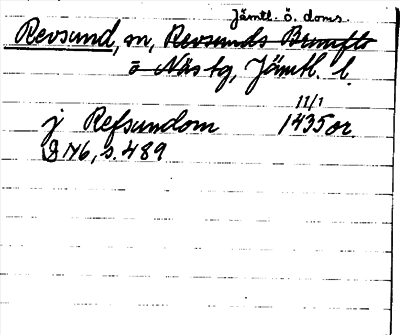 Jämtl. ö. doms.
Revsund, sn, Revsunds Brunflo
o Näs tg, Jämtl. l.
11/1
j Refsundom 1435 or.
D 176, s. 489